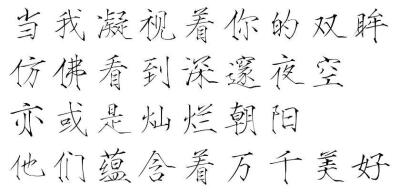 当我凝视着你的双眸
仿佛看到深邃夜空
亦或是灿烂朝阳
他们蕴含着万千美好